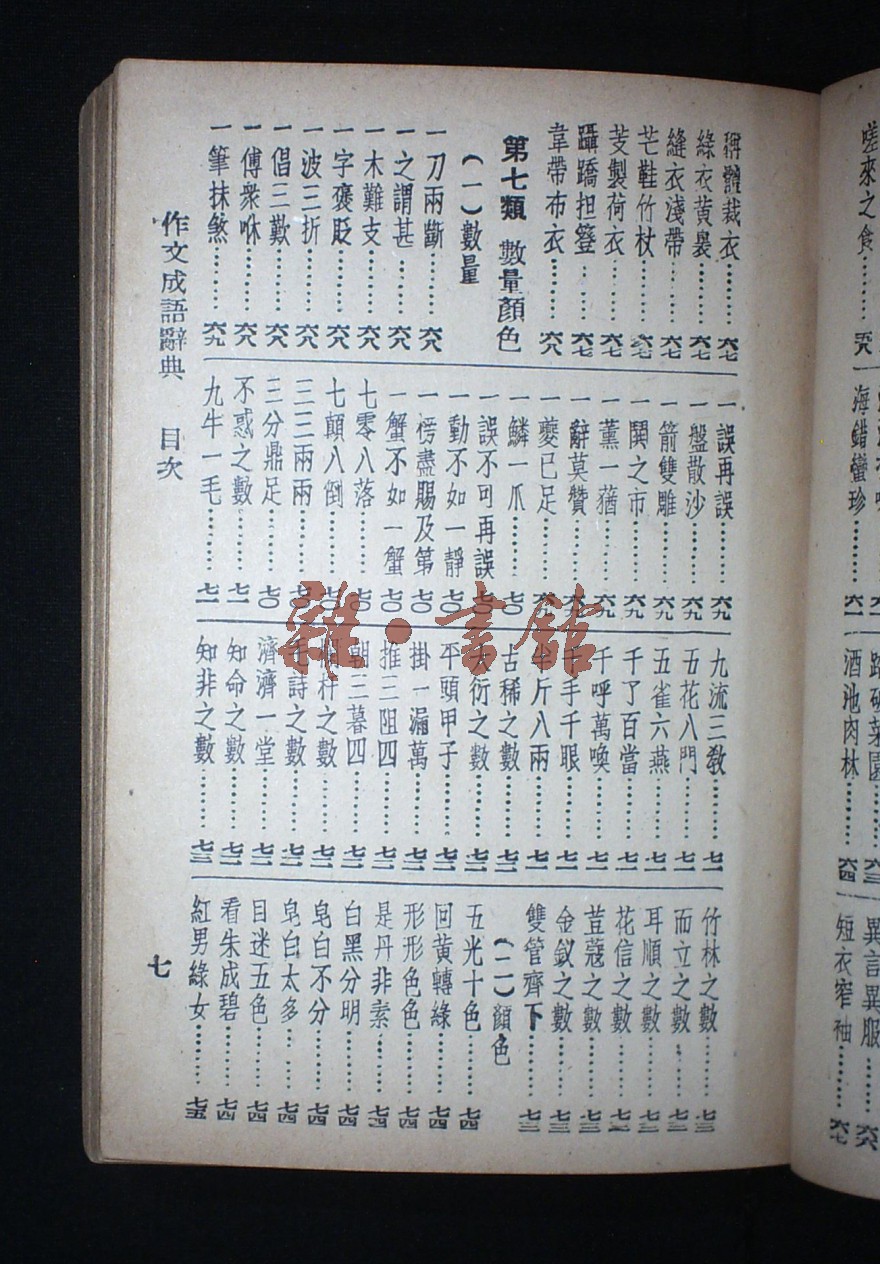 稱體裁衣………六七
綠衣黃裏………六七
縫衣淺帶………六七
芒鞋竹杖………六七
芰製荷衣………六七
躡蹻担簦………六七
韋帶布衣………六八
第七類 數量顏色
（一）數量
一刀兩斷………六八
一之謂甚………六八
一木難支………六八
一字褒貶………六八
一波三折………六八
一倡三歎………六八
一傅衆咻………六八
一筆抹煞………六九
一誤再誤………六九
一盤散沙………六九
一箭雙雕………六九
一鬨之市………六九
一薰一蕕………六九
一辭莫贊………六九
一夔已足………六九
一鱗一爪………七〇
一誤不可再誤 七〇
一動不如一靜 七〇
一榜盡賜及第 七〇
一蟹不如一蟹 七〇
七零八落………七〇
七顛八倒………七〇
三三兩兩………七〇
三分鼎足………七〇
不惑之數………七一
九牛一毛………七一
九流三教………七一
五花八門………七一
五雀六燕………七一
千了百當………七一
千呼萬喚………七一
千手千眼………七一
半斤八兩………七一
古稀之數………七二
大衍之數………七二
平頭甲子………七二
掛一漏萬………七二
推三阻四………七二
朝三暮四………七二
之數………七二
毛詩之數………七二
濟濟一堂………七二
知命之數………七二
知非之數………七三
竹林之數………七三
而立之數………七三
耳順之數………七三
花信之數………七三
荳蔻之數………七三
金釵之數………七三
雙管齊下………七三
（二）顏色
五光十色………七四
回黃轉綠………七四
形形色色………七四
是丹非素………七四
白黑分明………七四
皂白不分………七四
皂白太多………七四
目迷五色………七四
看朱成碧………七四
紅男綠女………七五
作文成語辭典 目次
七
雜·書館
嗟來之食………五八
海錯蠻珍………六一
酒池肉林………六四
異言異服………六六
短衣窄袖………六七